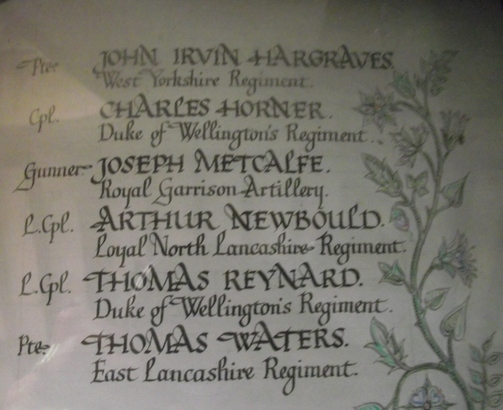 Pte. JOHN IRVIN HARGRAVES
West Yorkshire Regiment.
Cpl. CHARLES HORNER.
Duke of Wellington's Regiment.
Gunner JOSEPH METCALFE.
Royal Garrison Artillery.
L.Cpl. ARTHUR NEWBOULD.
Loyal North Lancashire Regiment.
L.Cpl. THOMAS REYNARD.
Duke of Wellington's Regiment.
Pte. THOMAS WATERS.
East Lancashire Regiment.